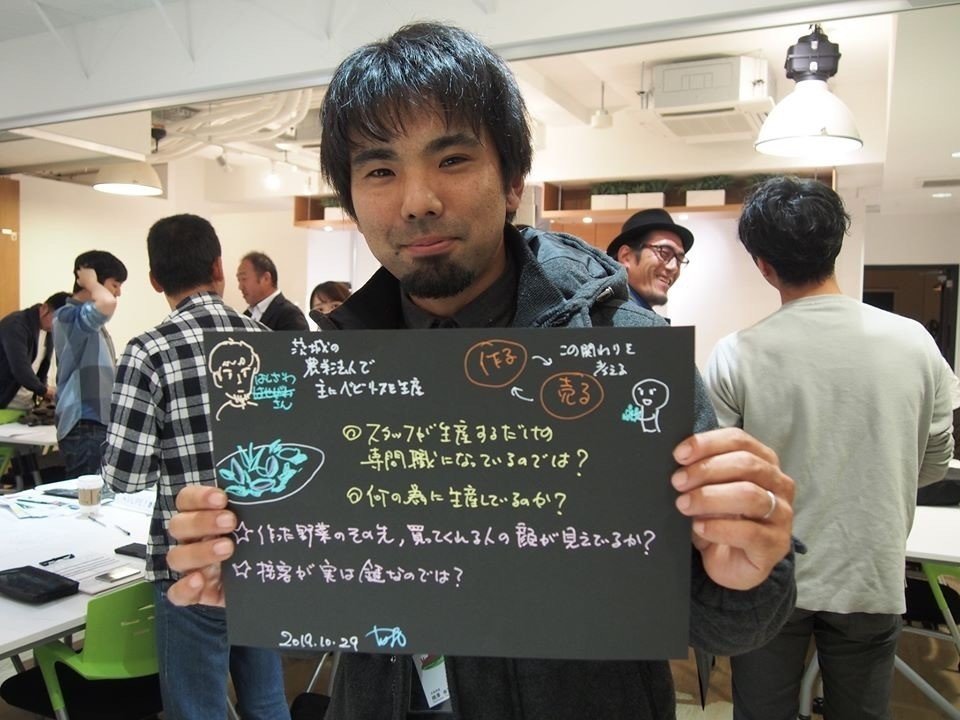 茨城の
農業法人で
主にベビーリーフを生産
はしざわ
さん
作る
売る
この関わりを
考える
◎スタッフが生産するだけの
専門職になっているのでは?
◎何の為に生産しているのか?
☆作った野菜のその先,買ってくれる人の顔が見えているか?
☆接客が実は鍵なのでは?
2019.10.29